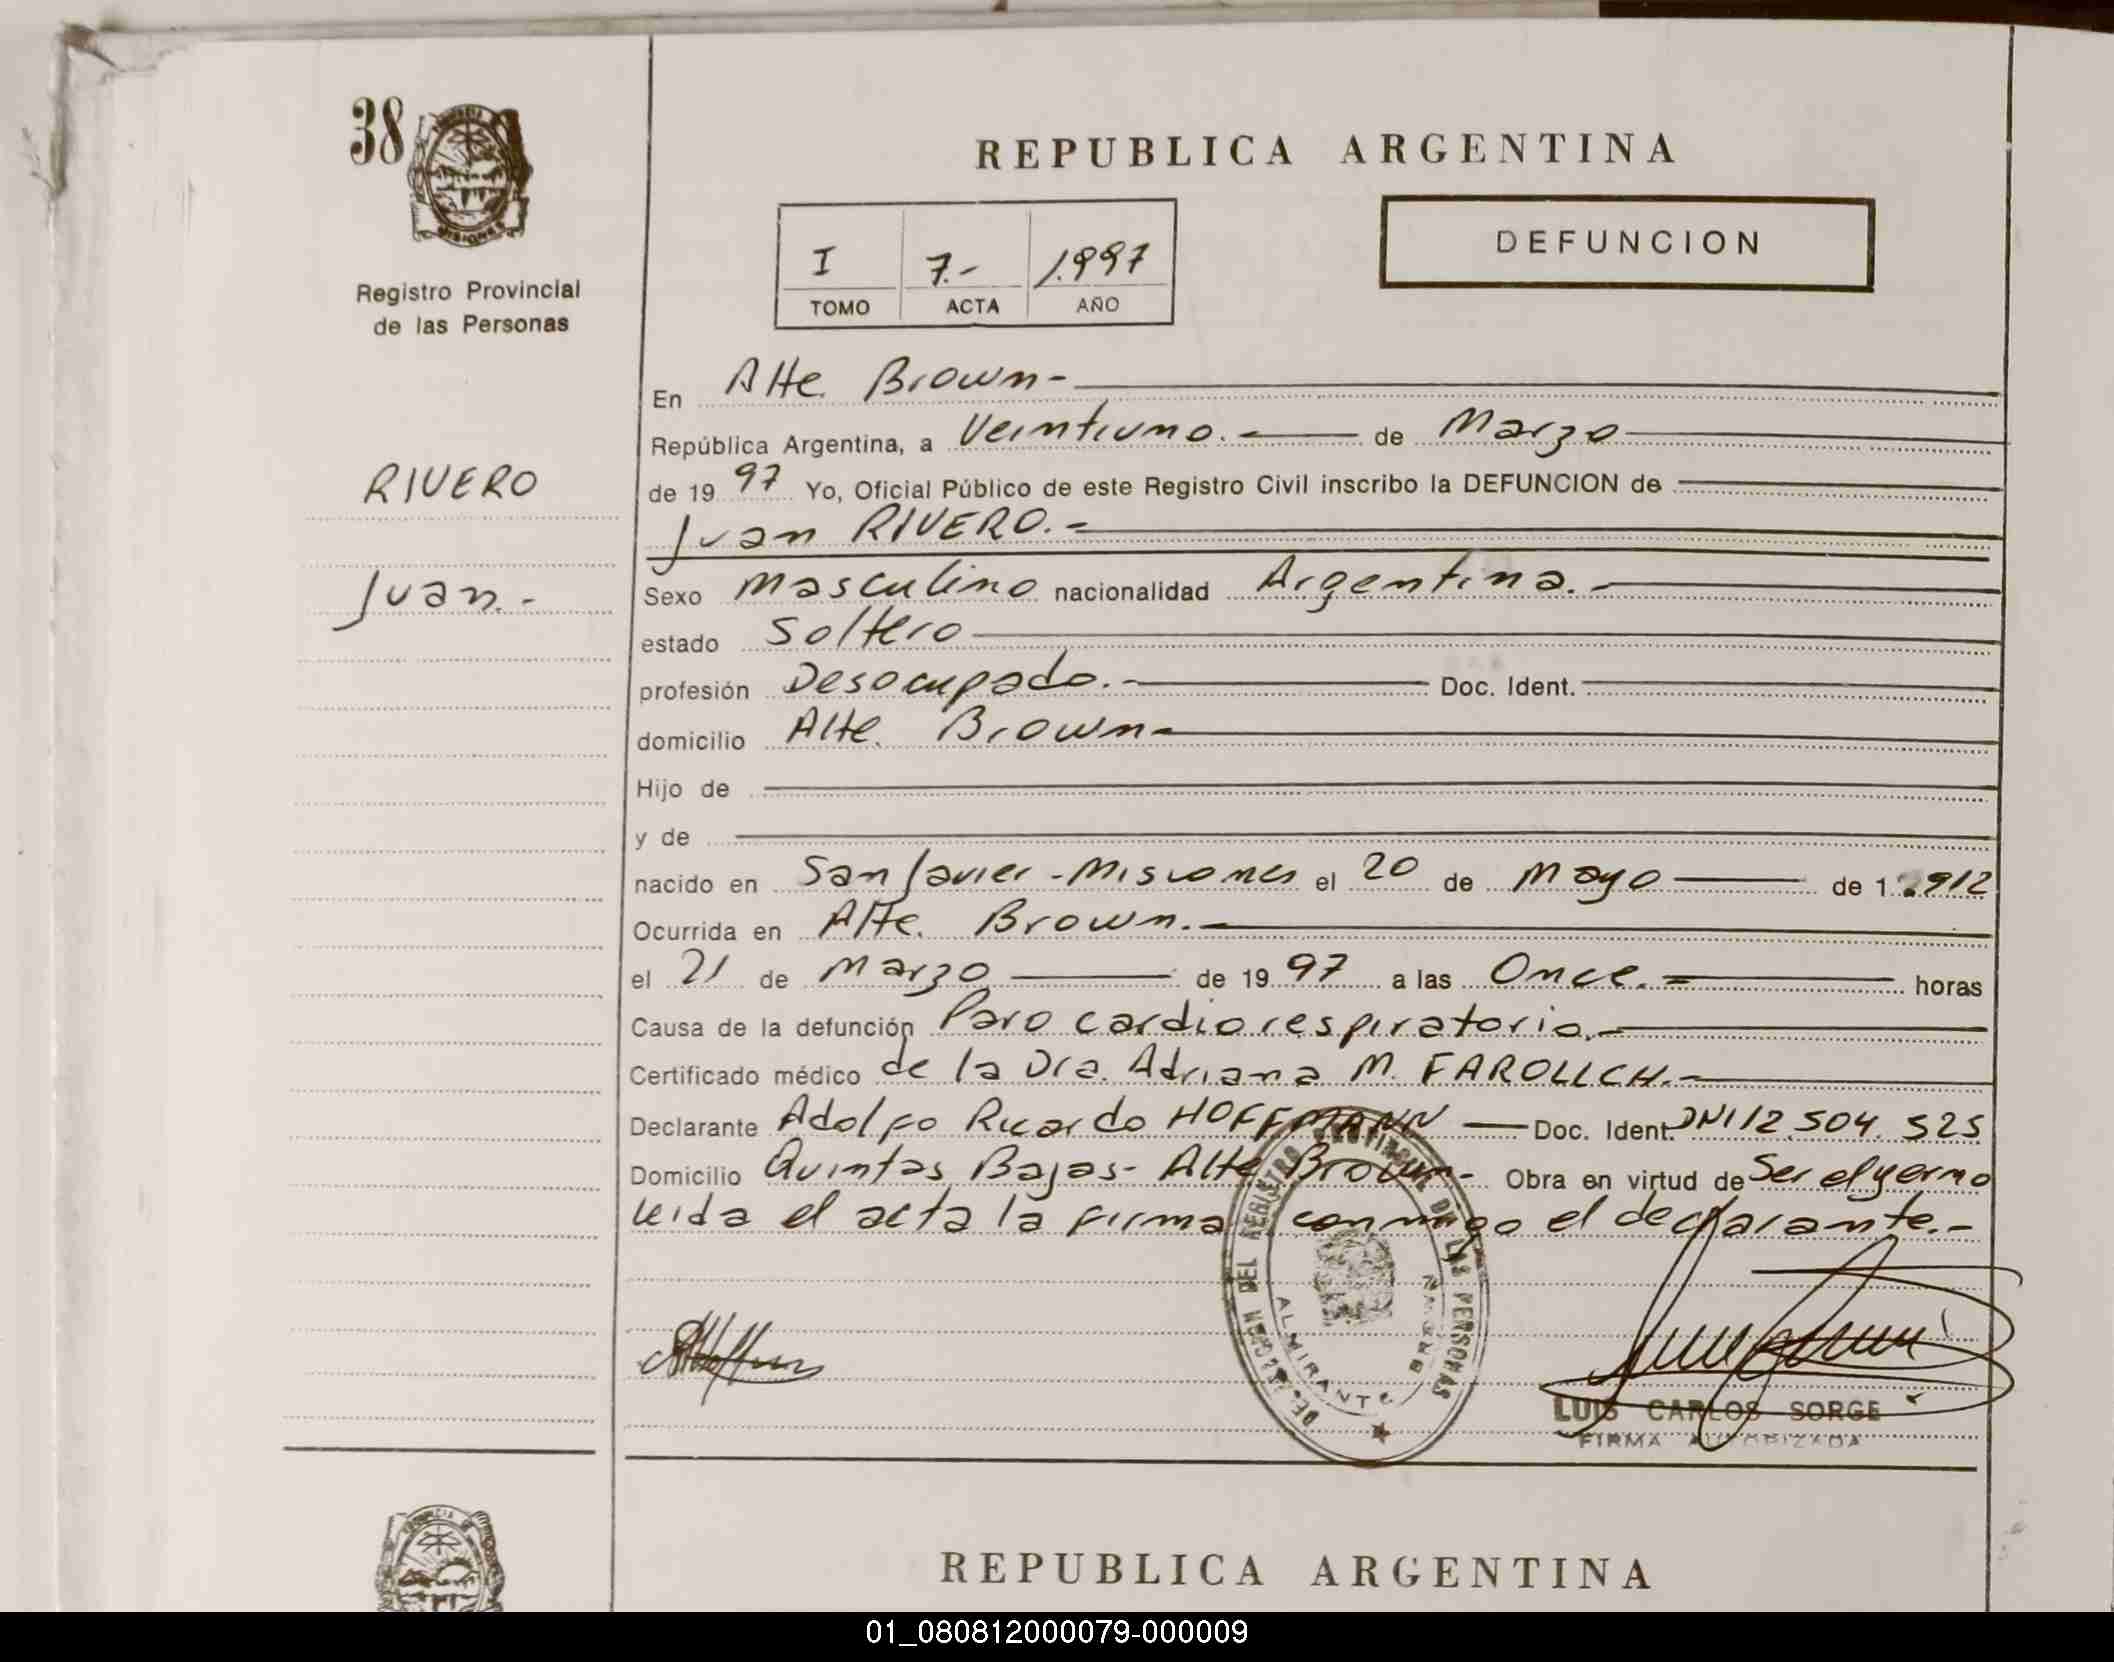 38
Registro Provincial
de las Personas
REPUBLICA ARGENTINA
I 7.- 1.997
TOMO ACTA AÑO
DEFUNCION
RIVERO
Juan.-
En Alte. Brown-
República Argentina, a Veintiuno.- de Marzo
de 19 97 Yo, Oficial Público de este Registro Civil inscribo la DEFUNCION de
Juan RIVERO.-
Sexo Masculino nacionalidad Argentina.-
estado Soltero
profesión Desocupado.- Doc. Ident.
domicilio Alte. Brown-
Hijo de
y de
nacido en San Javier - Misiones el 20 de Mayo de 1.912
Ocurrida en Alte. Brown.-
el 21 de Marzo de 19 97 a las Once.= horas
Causa de la defunción Paro cardiorespiratorio.-
Certificado médico de la Dra. Adriana M. FAROLLCH.-
Declarante Adolfo Ricardo HOFFMANN Doc. Ident. DNI 12.504.525
Domicilio Quintas Bajas- Alte Brown- Obra en virtud de Ser el yerno
leida el acta la firma conmigo el declarante.-
DEL REGISTRO PROVINCIAL DE LAS PERSONAS
ALMIRANTE BROWN
LUIS CARLOS SORGE
FIRMA AUTORIZADA
REPUBLICA ARGENTINA
01_080812000079-000009